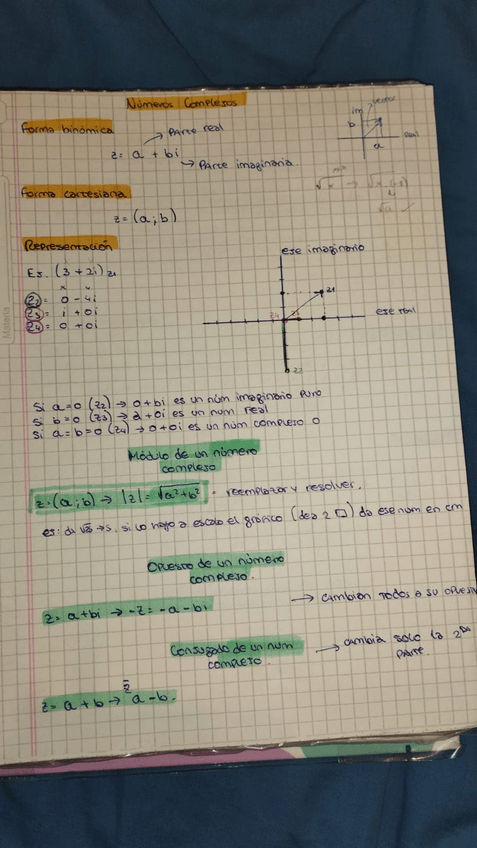 Números Complejos
im
vector
b
a
real
Forma binómica
Parte real
z = a + bi
Parte imaginaria
Forma cartesiana
z = (a ; b)
Representación
eje imaginario
Ej. (3 + 2i) z1
z1
z2 = 0 - 4i
z3 = 1 + 0i
eje real
z4 = 0 + 0i
Si a = 0 (z2) → 0 + bi es un núm imaginario puro
si b = 0 (z3) → a + 0i es un num real
si a = b = 0 (z4) → 0 + 0i es un núm complejo 0
Módulo de un número
complejo
z = (a ; b) → |z| = √a² + b² - reemplazar y resolver.
si lo hago a escala el gráfico (de a 2 □) da ese num en cm
Opuesto de un número
complejo.
z = a + bi → -z = -a - bi
→ cambian todos a su
Conjugado de un num
complejo.
→ cambia solo la 2da
parte
z = a + b → z̄ a - b.